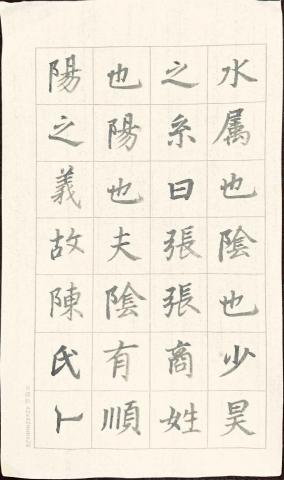 水属也陰也少昊
之系曰張張商姓
也陽也夫陰有順
陽之義故陳氏卜